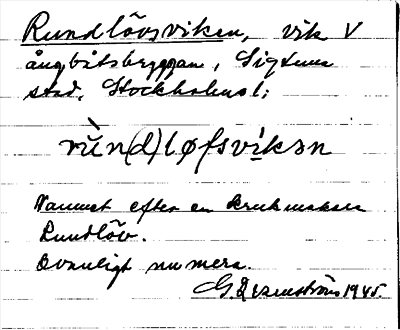 Rundlövsviken, vik V
ångbåtsbryggan, Sigtuna
stad, Stockholms l;
rùn(d)løfsvikən
Namnet efter en krukmakare
Rundlöv.
Ovanligt numera.
G. 1945.